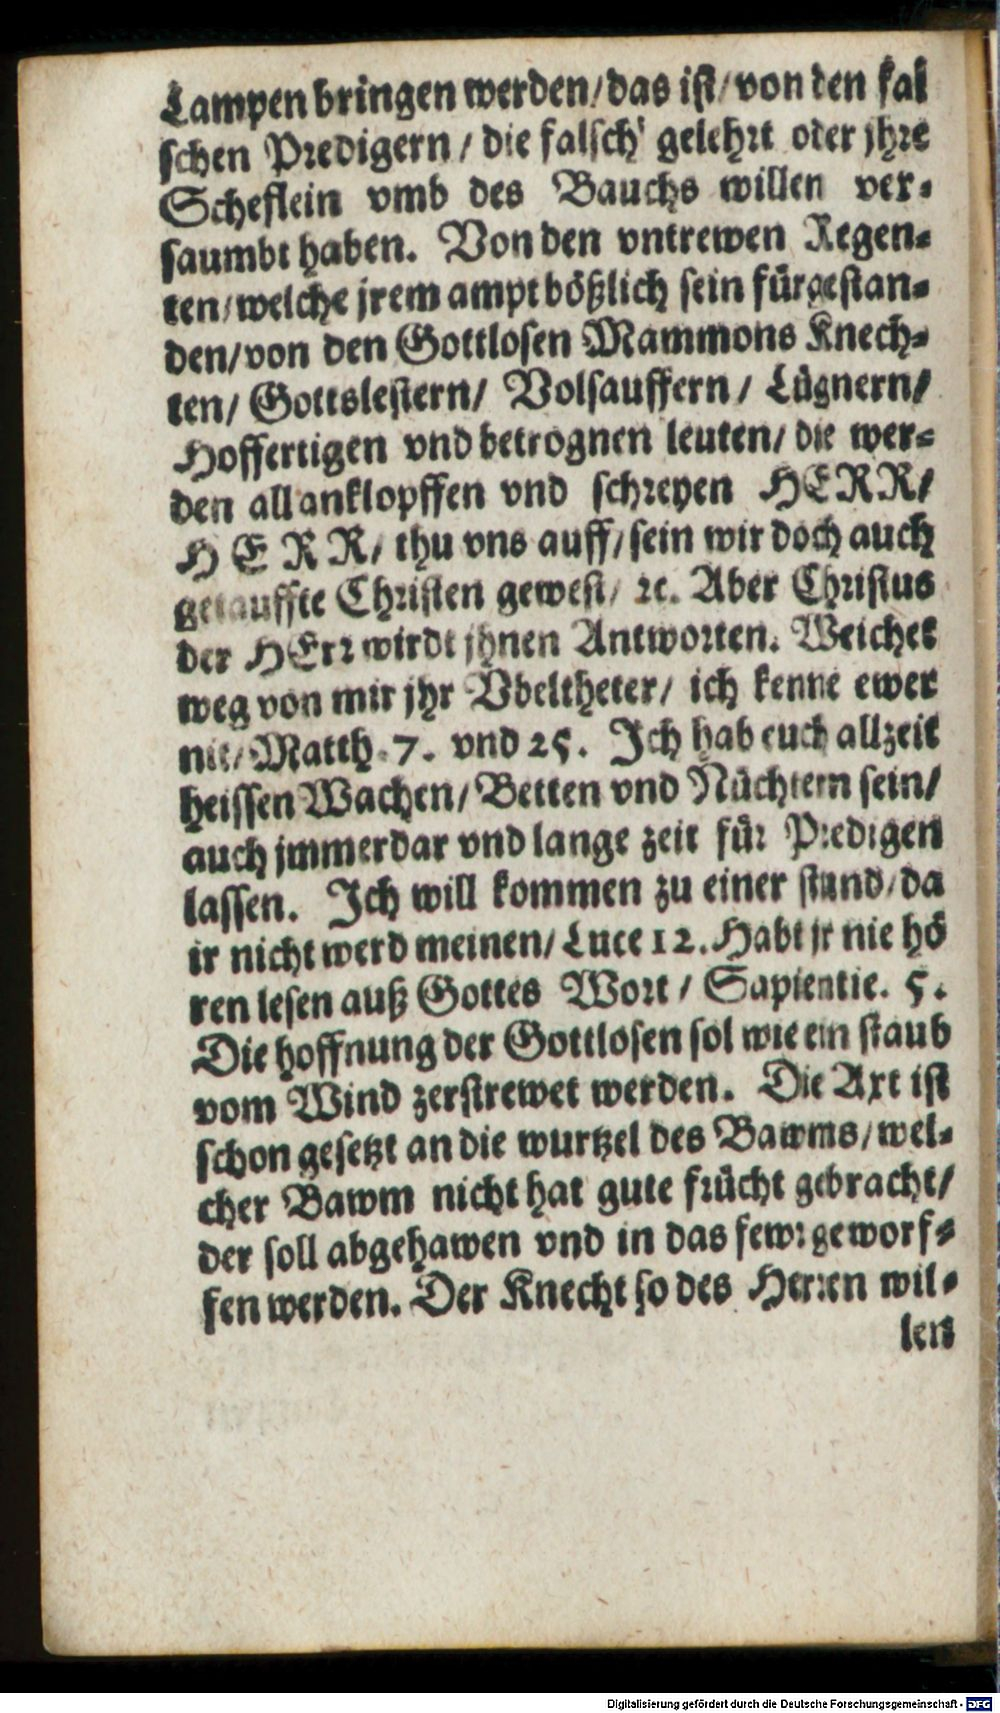 Lampen bringen werden/das ist/von den fal
schen Predigern/ die falsch gelehrt oder jhre
Scheflein vmb des Bauchs willen ver-
saumbt haben. Von den vntrewen Regen-
ten/welche jrem ampt bößlich sein fürgestan-
den/von den Gottlosen Mammons Knech-
ten/ Gottslestern/ Volsauffern/ Lügnern/
Hoffertigen vnd betrognen leuten/ die wer-
den all anklopffen vnd schreyen HERR/
HERR/ thu vns auff/sein wir doch auch
getauffte Christen gewest/ ꝛc. Aber Christus
der HErr wirdt jhnen Antworten. Weichet
weg von mir jhr Vbeltheter/ ich kenne ewer
nit/Matth. 7. vnd 25. Ich hab euch allzeit
heissen Wachen/Betten vnd Nüchtern sein/
auch jmmerdar vnd lange zeit für Predigen
lassen. Ich will kommen zu einer stund/da
ir nicht werd meinen/Luce 12. Habt jr nie hö
ren lesen auß Gottes Wort/ Sapientie. 5.
Die hoffnung der Gottlosen sol wie ein staub
vom Wind zerstrewet werden. Die Axt ist
schon gesetzt an die wurtzel des Bawms/wel-
cher Bawm nicht hat gute frücht gebracht/
der soll abgehawen vnd in das fewr geworf-
fen werden. Der Knecht so des Herren wil-
len
Digitalisierung gefördert durch die Deutsche Forschungsgemeinschaft - DFG